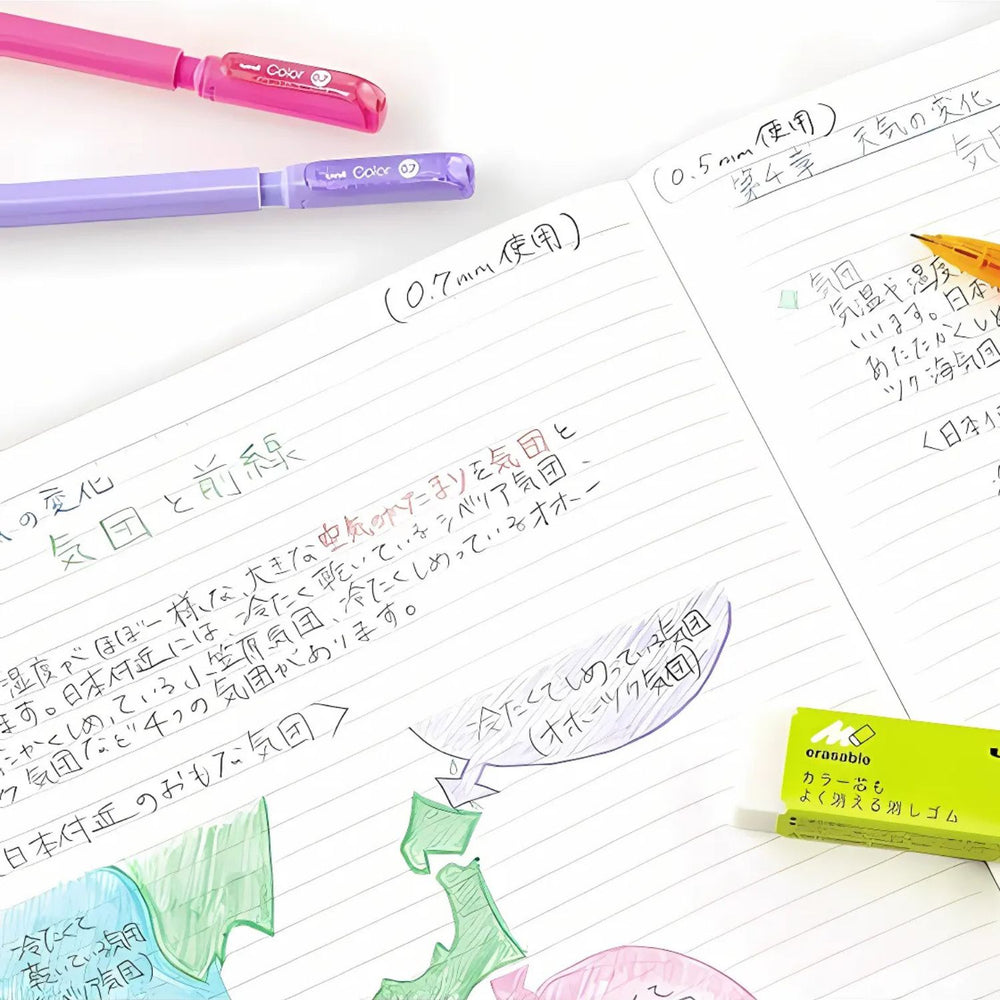 uni Color 0.7
uni Color 0.7
(0.7mm使用)
の変化
気団と前線
湿度がほぼ一様な、大きな空気のかたまりを気団と
ます。日本付近には、冷たく乾いているシベリア気団、
かくしめっている小笠原気団、冷たくしめっているオホー
ツク気団など4つの気団があります。
日本付近のおもな気団〉
冷たくてしめっている気団
(オホーツク気団)
冷たくて
乾いている気団
シベリア気団)
(0.5mm使用)
第4章 天気の変化
気団
気団
気温や湿度
いいます。日本
あたたかくしめ
ツク海気団
〈日本付
erasable
カラー芯も
よく消える消しゴム